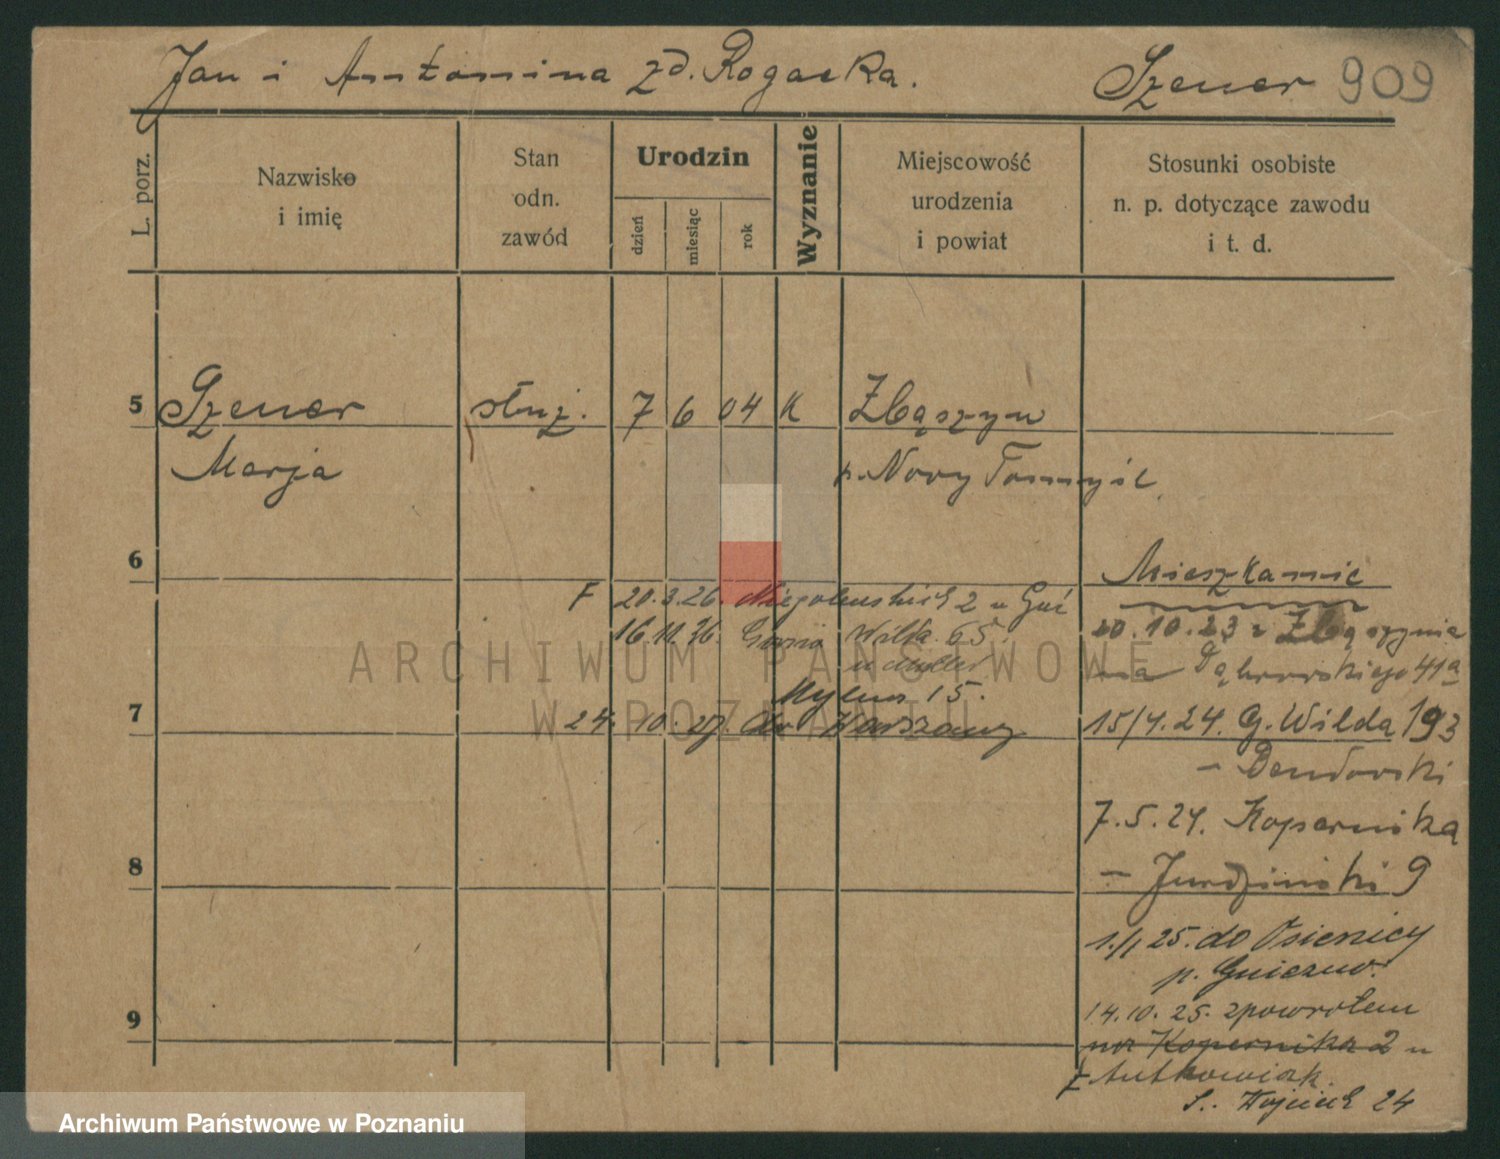 Jan i Antonina zd. Rogacka. Szener 909
L. porz.
Nazwisko
i imię
Stan
odn.
zawód
Urodzin
dzień
miesiąc
rok
Wyznanie
Miejscowość
urodzenia
i powiat
Stosunki osobiste
n. p. dotyczące zawodu
i t. d.
5 Szener służ. 7 6 04 K Zbąszyn
Marja p. Nowy Tomyśl
6
Mieszkanie
F 20.3.26. Niegolewskich 2 u
16.11.26. Górna Wilda 65
u Müller
Mylna 15.
7 24. 10. 27. do Warszawy
20.10.23 z Zbąszynia
na Dąbrowskiego 41a
15/4.24. G. Wilda 193
- Dendorski
7.5.24. Kopernika
8
- 9
1./1 25. do Osienicy
p. Gniezno.
14.10.25. zpowrotem
9
na Kopernika 2 u
F Antkowiak.
S. Wojciech 24
ARCHIWUM PAŃSTWOWE
W POZNANIU
Archiwum Państwowe w Poznaniu